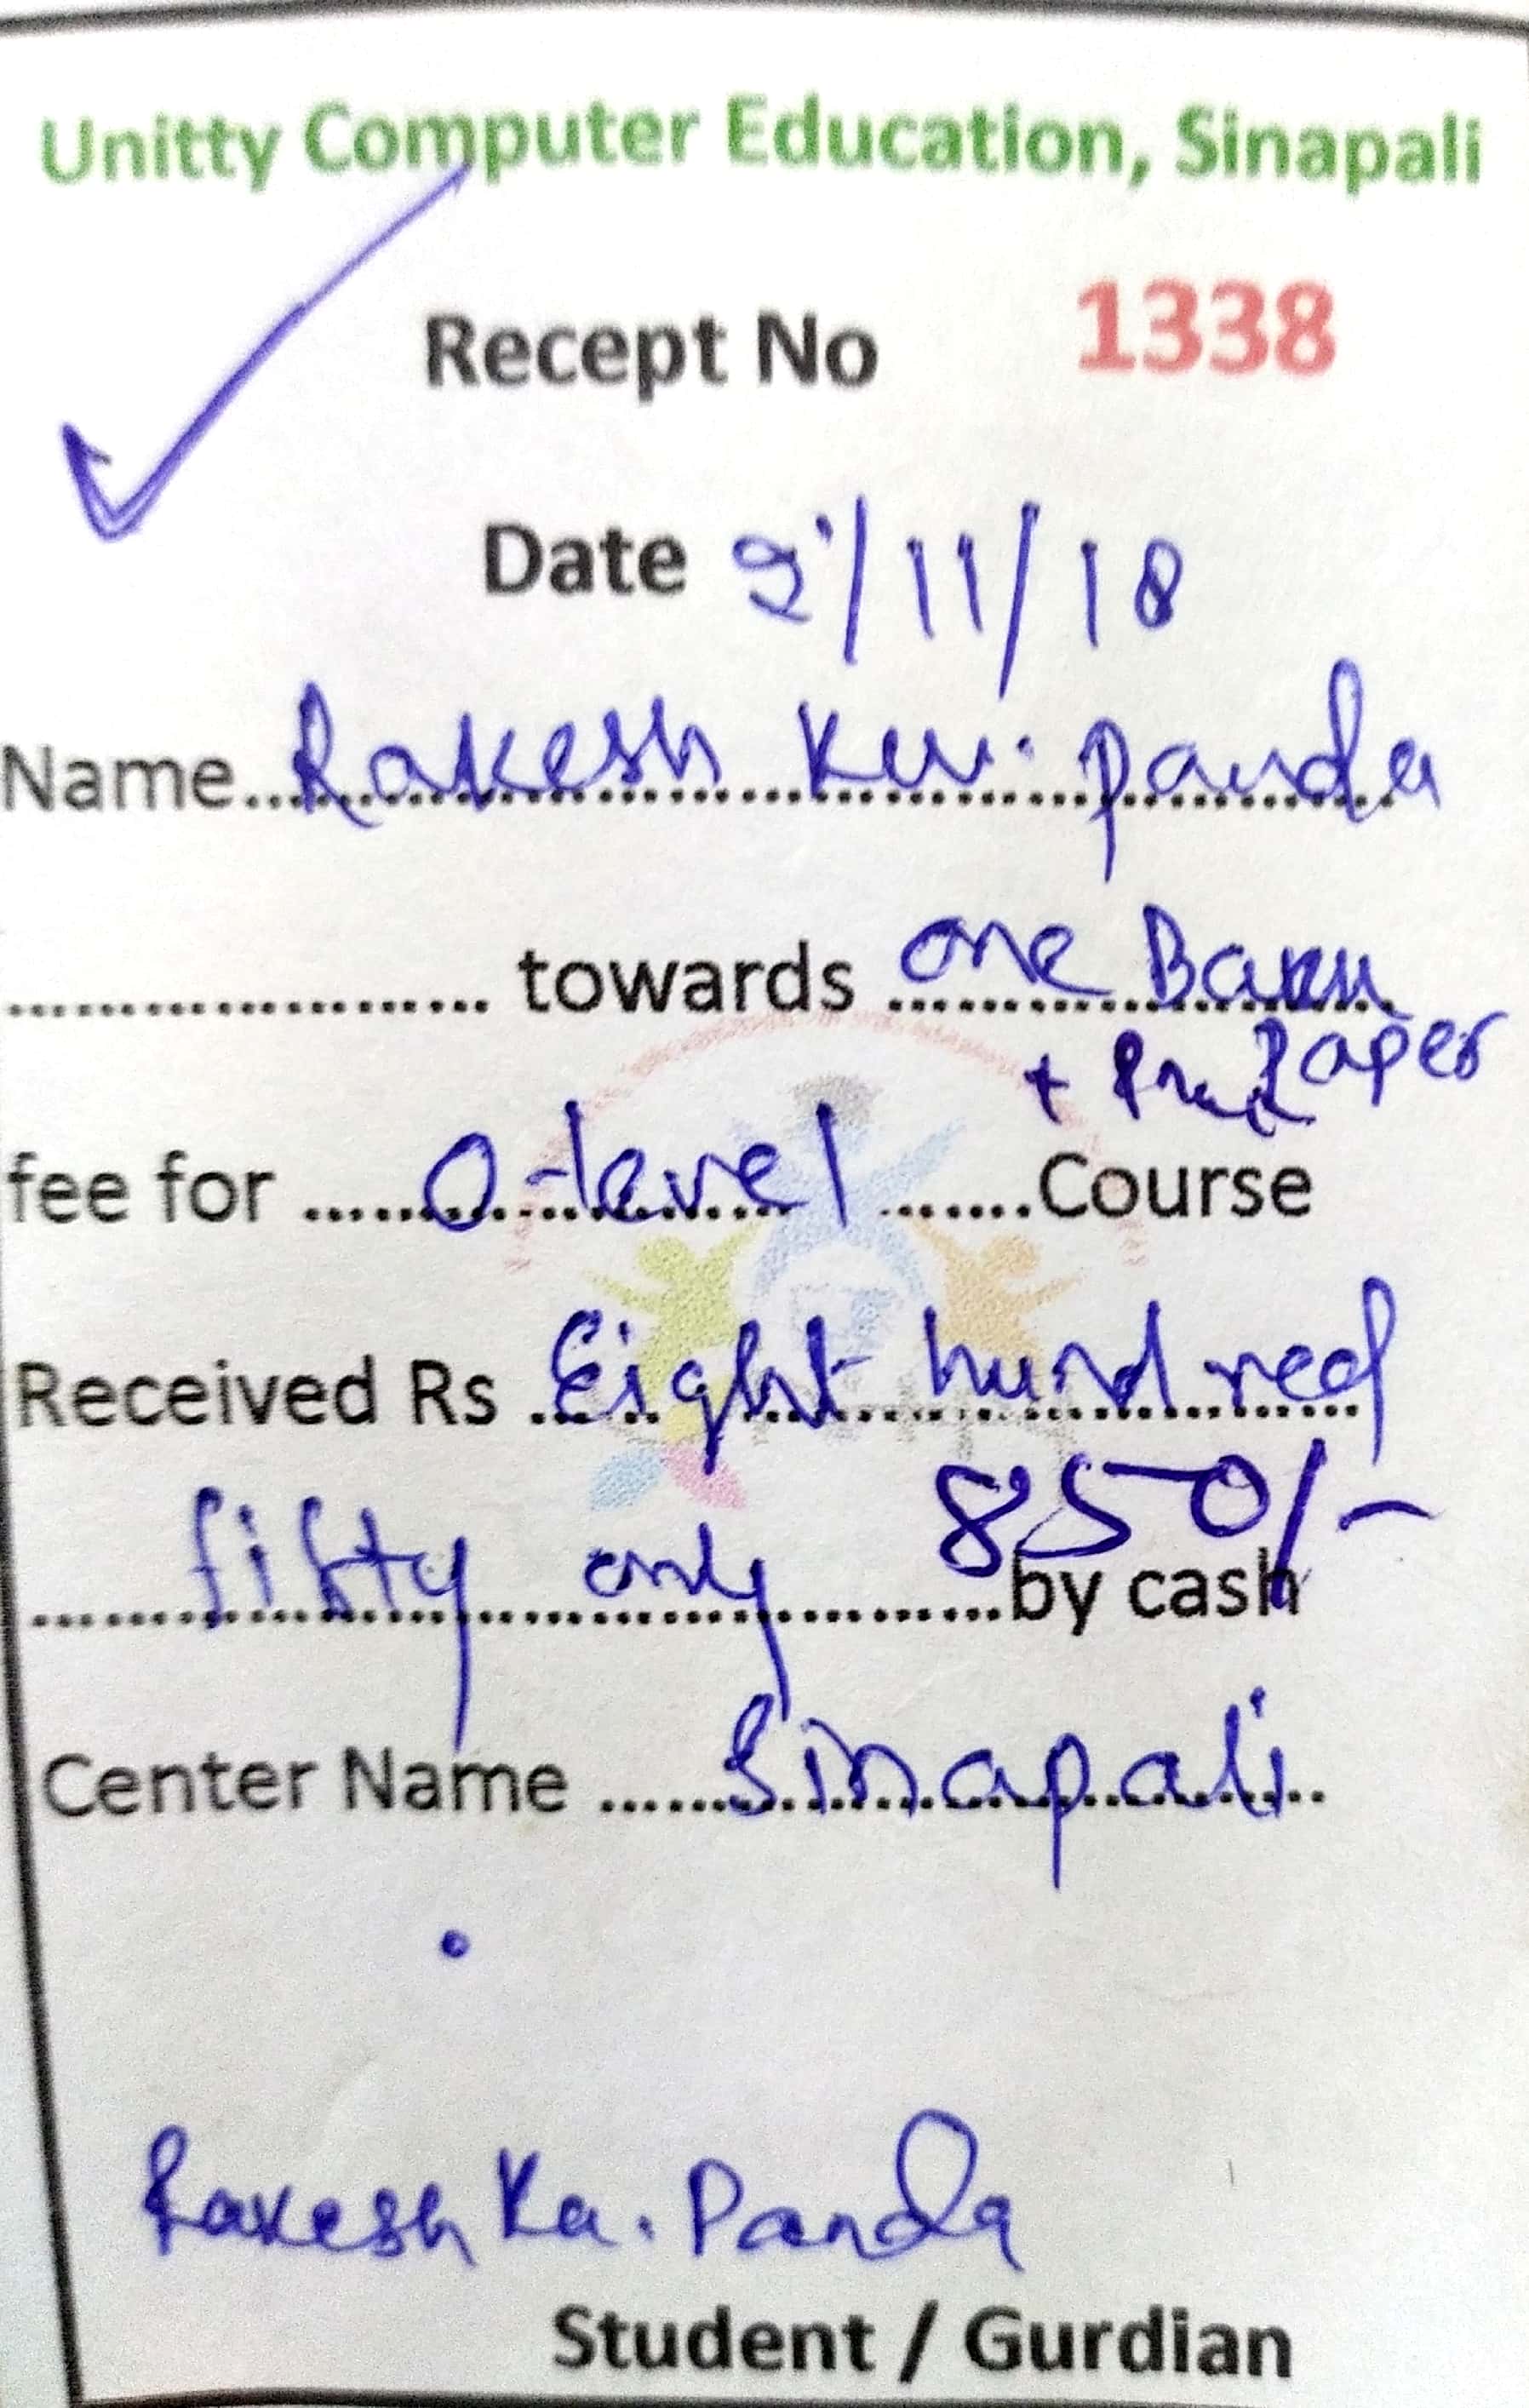 Unitty Computer Education, Sinapali
Recept No 1338
Date 9/11/18
Name Rakesh Ku. Panda
towards one
+ Paper
fee for O-level Course
Received Rs Eight hundred
fifty only 850/- by cash
Center Name Sinapali
Rakesh Ku. Panda
Student / Gurdian